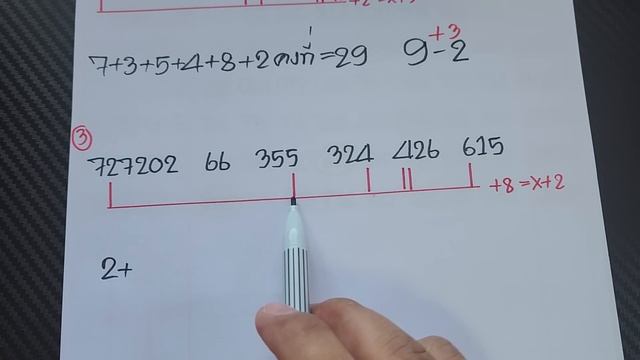 7+3+5+4+8+2 คงที่ =29 9-2
+3
③
727202 66 355 324 426 615
+8=x+2
2+